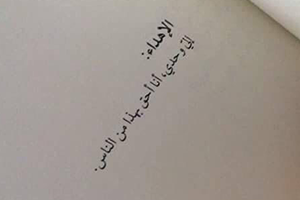 الإهداء:
إليّ وحدي، أنا أحق بهذا من الناس.